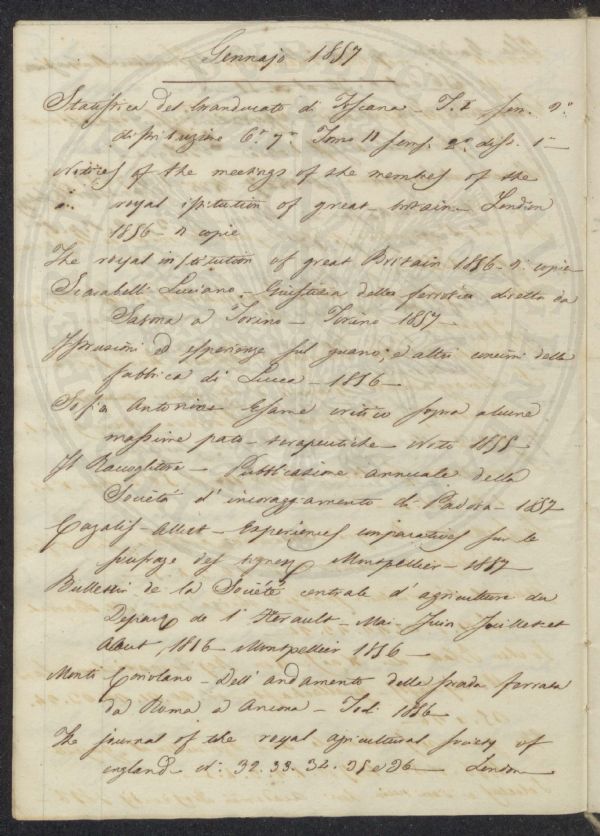 Gennajo 1857
Statistica del Granducato di Toscana - T. I fen. 2°
distribuzione 6° 7° Tomo II 2° disp. 1
Notices of the meetings of the members of the
royal istitution of great britain London
1856 - 2 copie
The royal institution of great Britain 1856 - 2 copie
Scarabelli Luciano - Giustizia della ferrovia diretta da
Savona a Torino - Torino 1857
Istruzioni ed esperienze sul guano, e altri concimi della
fabbrica di Lucca - 1856
Sofia Antonino Esame critico sopra alcune
massime pato-terapeutiche Noto 1855
Il Raccoglitore - Pubblicazione annuale della
Società d'incoraggiamento di Padova - 1857
Cazalis-Allut - Experiences comparatives sur le
soufrage des vignes Montpellier - 1857
Bulletin de la Société centrale d'agriculture du
Depart de l'Herault - Mai Juin Juillet et
Aout, 1856 Montpellier 1856
Monti Coriolano - Dell'andamento della strada ferrata
da Roma a Ancona - Todi 1856
The journal of the royal agricultural society of
england n: 32. 33. 34. 35 e 36 - London